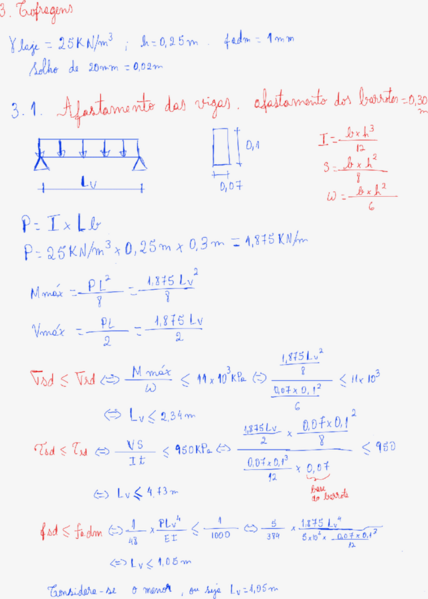 3. Cofragens
γ laje = 25KN/m³ ; h = 0,25m . fadm = 1mm
Solho de 20mm = 0,02m
3.1. Afastamento das vigas. afastamento dos barrotes = 0,30m
Lv
0,1
0,07
I = b×h³/12
S = b×h²/8
W = b×h²/6
P = I × Lb
P = 25KN/m³ × 0,25m × 0,3m = 1,875KN/m
Mmáx = PL²/8 = 1,875Lv²/8
Vmáx = PL/2 = 1,875Lv/2
σsd ≤ σrd ⇔ Mmáx/W ≤ 11×10³KPa ⇔ (1,875Lv²/8)/(0,07×0,1²/6) ≤ 11×10³
⇔ Lv ≤ 2,34m
τsd ≤ τrd ⇔ VS/It ≤ 950KPa ⇔ (1,875Lv/2 × 0,07×0,1²/8)/(0,07×0,1³/12 × 0,07) ≤ 950
base do barrote
⇔ Lv ≤ 4,73m
fsd ≤ fadm ⇔ 1/48 × PLv⁴/EI ≤ 1/1000 ⇔ 5/384 × 1,875Lv⁴/(
0,07×0,1³/12)
⇔ Lv ≤ 1,05m
Considera-se o menor, ou seja Lv = 1,05m